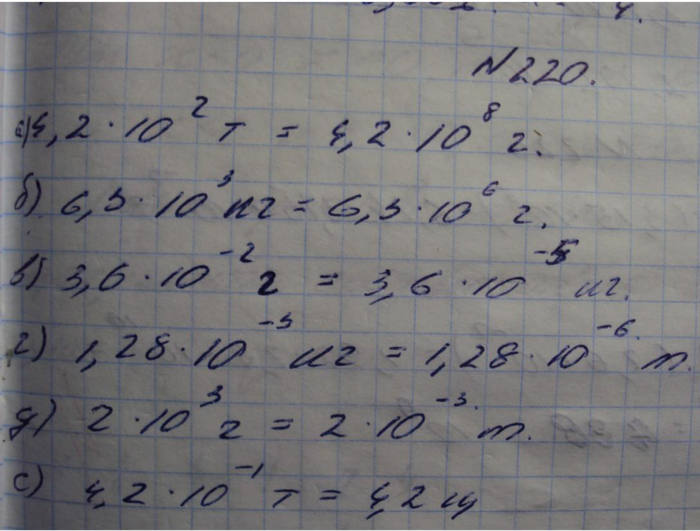 N220.
а) 4,2·10² т = 4,2·10⁸ г.
б) 6,3·10³ кг = 6,3·10⁶ г.
в) 3,6·10⁻² г = 3,6·10⁻⁵ кг.
г) 1,28·10⁻³ кг = 1,28·10⁻⁶ т.
д) 2·10³ г = 2·10⁻³ т.
е) 4,2·10⁻¹ т = 4,2 ц